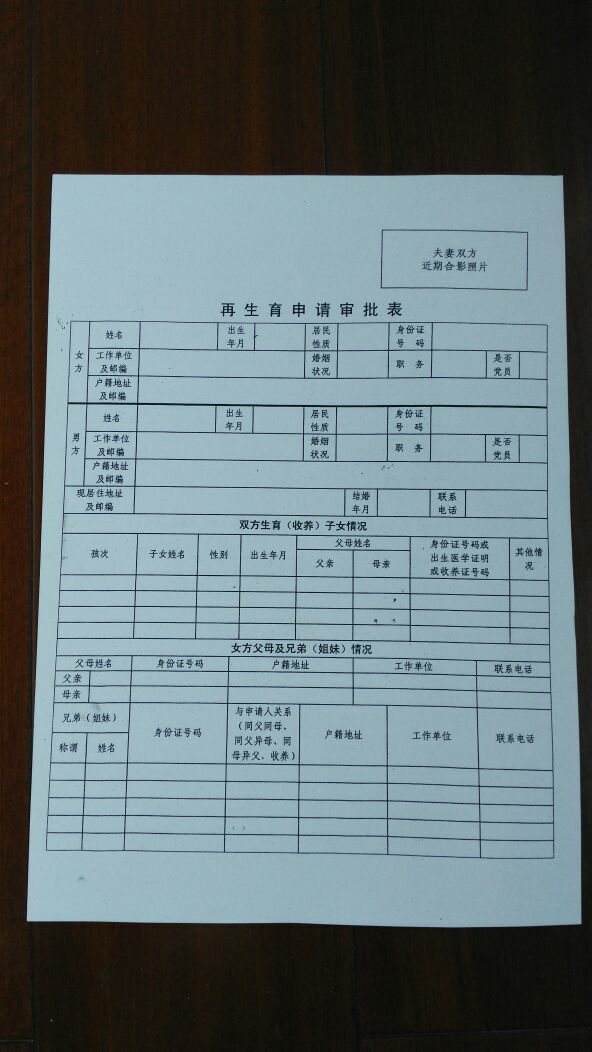 夫妻双方
近期合影照片
再生育申请审批表
女方
姓名 出生年月 居民性质 身份证号码
工作单位及邮编 婚姻状况 职务 是否党员
户籍地址及邮编
男方
姓名 出生年月 居民性质 身份证号码
工作单位及邮编 婚姻状况 职务 是否党员
户籍地址及邮编
现居住地址及邮编 结婚年月 联系电话
双方生育（收养）子女情况
孩次 子女姓名 性别 出生年月 父母姓名 身份证号码或出生医学证明或收养证号码 其他情况
父亲 母亲
女方父母及兄弟（姐妹）情况
父母姓名 身份证号码 户籍地址 工作单位 联系电话
父亲
母亲
兄弟（姐妹） 身份证号码 与申请人关系（同父同母、同父异母、同母异父、收养） 户籍地址 工作单位 联系电话
称谓 姓名